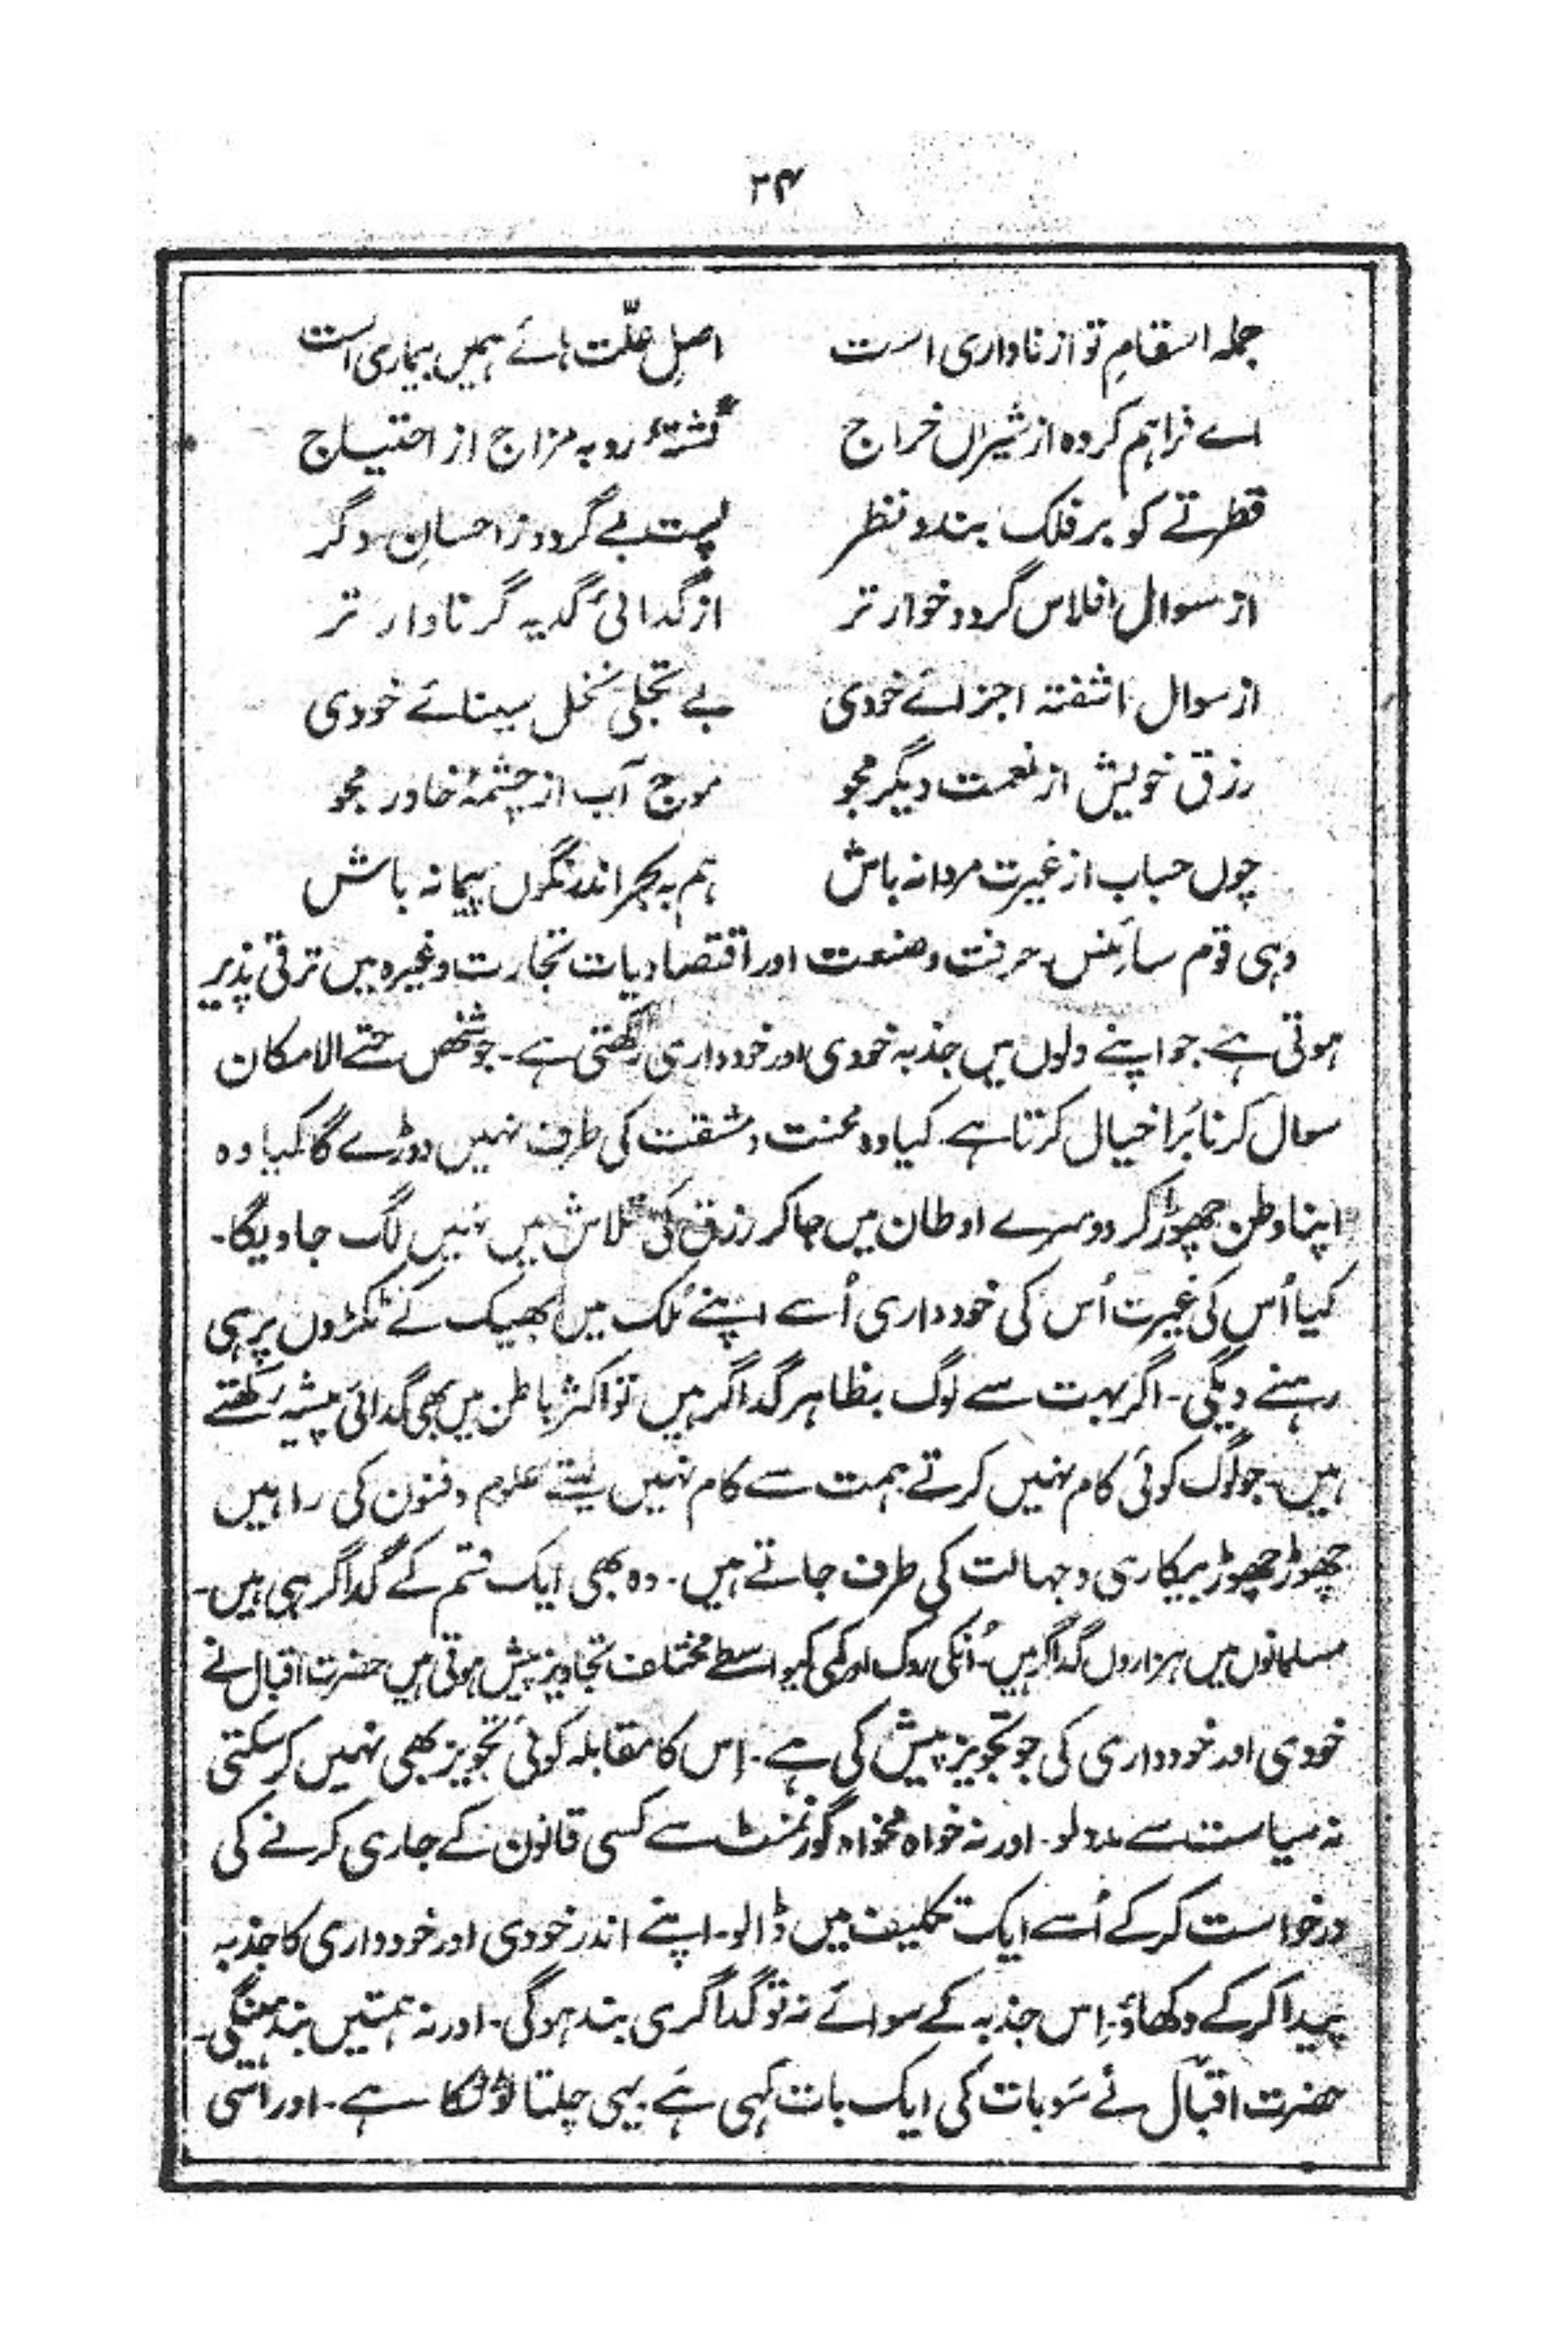 ۲۴
جملہ اسقامِ تو از ناداری است اصلِ علّت ہائے ہمیں بیماری است
اے فراہم کردہ از شیراں خراج گشتۂ روبہ مزاج از احتیاج
فطرتے کو بر فلک بندد نظر پست بے گردد ز احسانِ دگر
از سوال افلاس گردد خوار تر از گدائیٔ گدیہ گر نادار تر
از سوال اشفتہ اجزائے خودی بے تجلی نخل سینائے خودی
رزق خویش از نعمت دیگر مجو موج آب از چشمۂ خاور مجو
چوں حباب از غیرت مردانہ باش ہم بہ بحر اندر نگوں پیمانہ باش
وہی قوم سائنس۔ حرفت و صنعت اور اقتصادیات تجارت وغیرہ میں ترقی پذیر
ہوتی ہے۔ جو اپنے دلوں میں جذبہ خودی اور خودداری رکھتی ہے۔ جو شخص حتے الامکان
سوال کرنا بُرا خیال کرتا ہے کیا وہ محنت و مشقت کی طرف نہیں دوڑے گا کیا وہ
اپنا وطن چھوڑ کر دوسرے اوطان میں جا کر رزق کی تلاش میں نہیں لگ جاویگا۔
کیا اُس کی غیرت اُس کی خودداری اُسے اپنے مُلک میں بھیک کے ٹکڑوں پر ہی
رہنے دیگی۔ اگر بہت سے لوگ بظاہر گداگر ہیں تو اکثر باطن میں بھی گدائی پیشہ رکھتے
ہیں۔ جو لوگ کوئی کام نہیں کرتے ہمت سے کام نہیں لیتے علوم و فنون کی راہیں
چھوڑ چھوڑ بیکاری و جہالت کی طرف جاتے ہیں۔ وہ بھی ایک قسم کے گداگر ہی ہیں۔
مسلمانوں میں ہزاروں گداگر ہیں۔ اُنکی روک اور کمی کیواسطے مختلف تجاویز پیش ہوتی ہیں حضرت اقبال نے
خودی اور خودداری کی جو تجویز پیش کی ہے۔ اِس کا مقابلہ کوئی تجویز بھی نہیں کر سکتی
نہ سیاست سے مدد لو۔ اور نہ خواہ مخواہ گورنمنٹ سے کسی قانون کے جاری کرنے کی
درخواست کر کے اُسے ایک تکلیف میں ڈالو۔ اپنے اندر خودی اور خودداری کا جذبہ
پیدا کر کے دکھاؤ۔ اِس جذبہ کے سوائے نہ تو گداگری بند ہوگی۔ اور نہ ہمتیں بند ہونگی۔
حضرت اقبال نے سَو بات کی ایک بات کہی ہے۔ یہی چلتا ٹوٹکا ہے۔ اور اسی